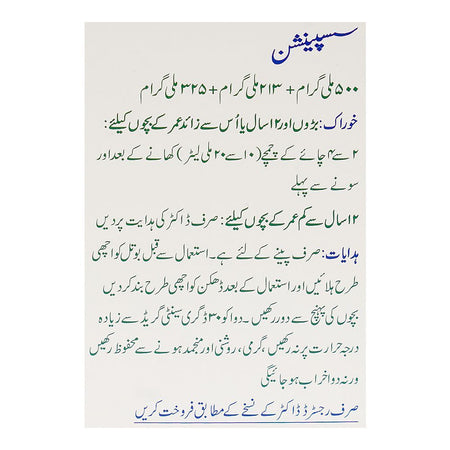 سسپینشن
۵۰۰ ملی گرام + ۲۱۳ ملی گرام + ۳۲۵ ملی گرام
خوراک: بڑوں اور ۱۲ سال یا اُس سے زائد عمر کے بچوں کیلئے:
۲ سے ۴ چائے کے چمچے (۱۰ سے ۲۰ ملی لیٹر) کھانے کے بعد اور
سونے سے پہلے
۱۲ سال سے کم عمر کے بچوں کیلئے: صرف ڈاکٹر کی ہدایت پر دیں
ہدایات: صرف پینے کے لئے ہے۔ استعمال سے قبل بوتل کو اچھی
طرح ہلائیں اور استعمال کے بعد ڈھکن کو اچھی طرح بند کر دیں
بچوں کی پہنچ سے دور رکھیں۔ دوا کو ۳۰ ڈگری سینٹی گریڈ سے زیادہ
درجہ حرارت پر نہ رکھیں، گرمی، روشنی اور منجمد ہونے سے محفوظ رکھیں
ورنہ دوا خراب ہو جائیگی
صرف رجسٹرڈ ڈاکٹر کے نسخے کے مطابق فروخت کریں